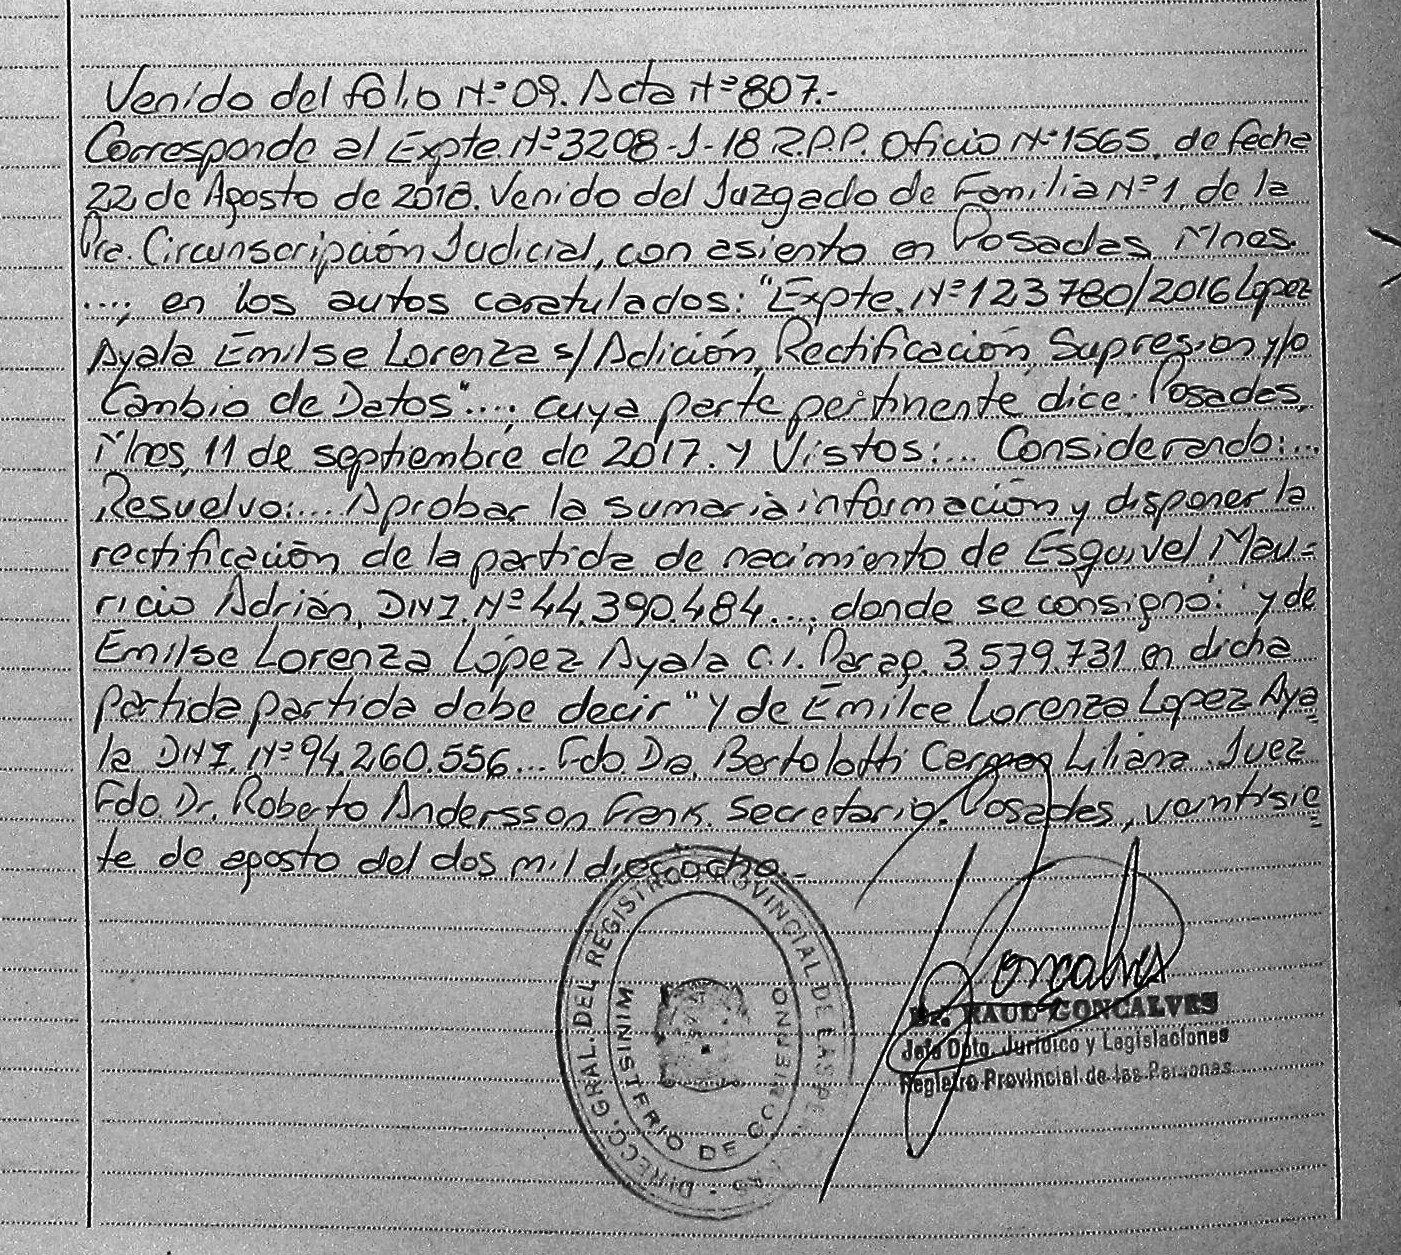 Venido del folio N° 09. Acta N° 807.-
Corresponde al Expte. N° 3298-J-18 R.P.P. Oficio N° 1565, de fecha
22 de Agosto de 2018. Venido del Juzgado de Familia N° 1, de la
Pra. Circunscripción Judicial, con asiento en Posadas Mnes.
...; en los autos caratulados: "Expte. N° 123780/2016 Lopez
Ayala Emilse Lorenza s/ Adición, Rectificación, Supresion y/o
Cambio de Datos"...; cuya parte pertinente dice: Posadas,
Mnes, 11 de septiembre de 2017. Y Vistos:... Considerando:...
Resuelvo:... Aprobar la sumaria información y disponer la
rectificación de la partida de nacimiento de Esquivel Mau=
ricio Adrián, DNI. N° 44.390.484...; donde se consignó: "y de
Emilse Lorenza López Ayala C.I. Parag. 3.579.731 en dicha
partida partida debe decir "Y de Emilce Lorenza Lopez Aya=
la DNI. N° 94.260.556... Fdo. Da. Bertolotti Carmen Liliana. Juez
Fdo. Dr. Roberto Andersson Frank. Secretario. Posadas, veintisie=
te de agosto del dos mil dieciocho.-
DIRECC. GRAL. DEL REGISTRO PROVINCIAL DE LAS PERSONAS
MINISTERIO DE GOBIERNO
Goncalves
Dr. RAUL GONCALVES
Jefe Dpto. Jurídico y Legislaciones
Registro Provincial de las Personas